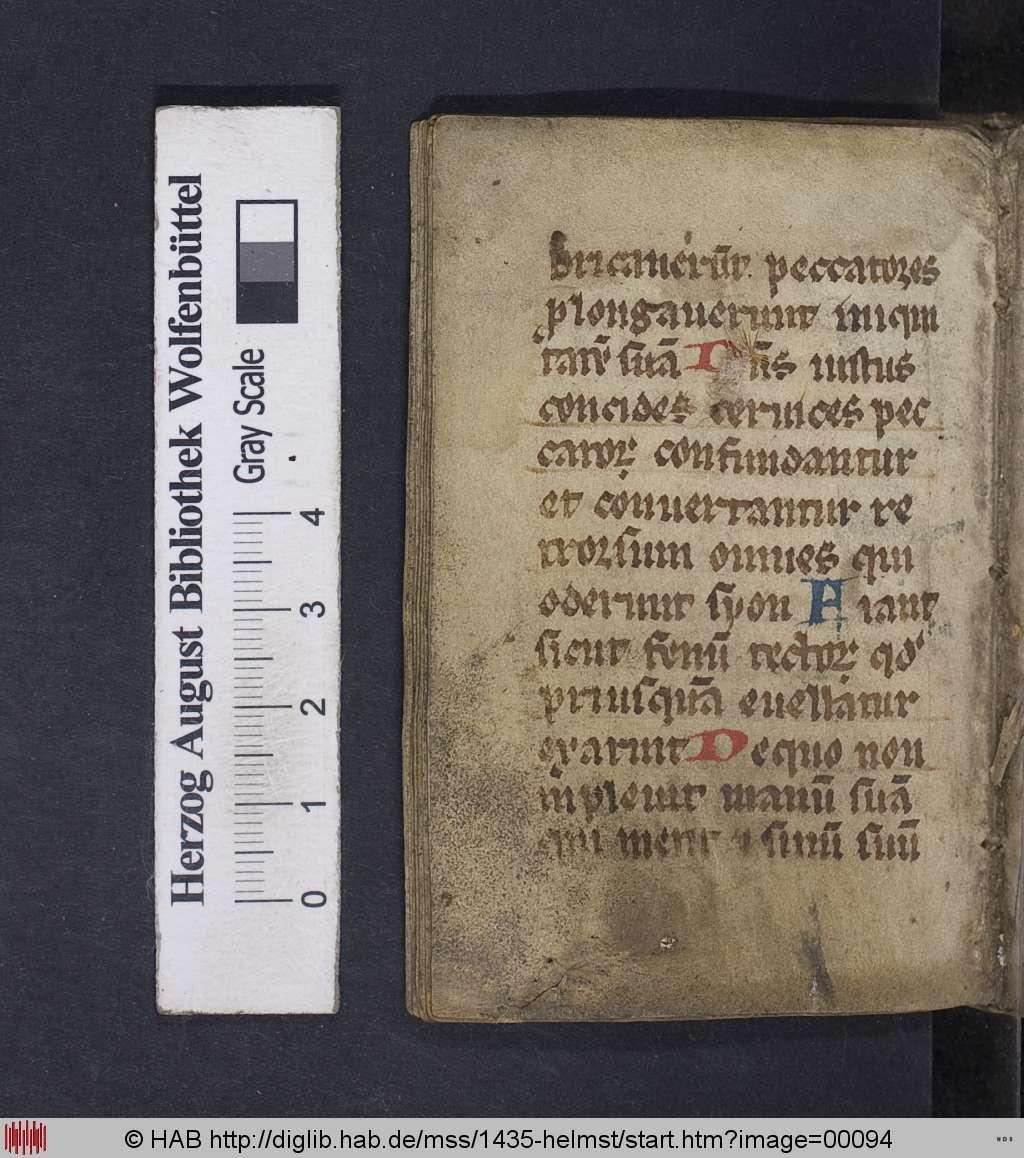 Herzog August Bibliothek Wolfenbüttel
Gray Scale
0 1 2 3 4
bricauerūt peccatores
ꝓlongauerunt iniqui
tatē suā Dn̄s iustus
concides ceruices pec
catoꝝ confundantur
et conuertantur re
trorsum omnes qui
oderunt syon Fiant
sicut fenū tectoꝝ qd̛
priusquā euellatur
exaruit De quo non
inpleuit manū suā
qui metit sinū suū
© HAB http://diglib.hab.de/mss/1435-helmst/start.htm?image=00094